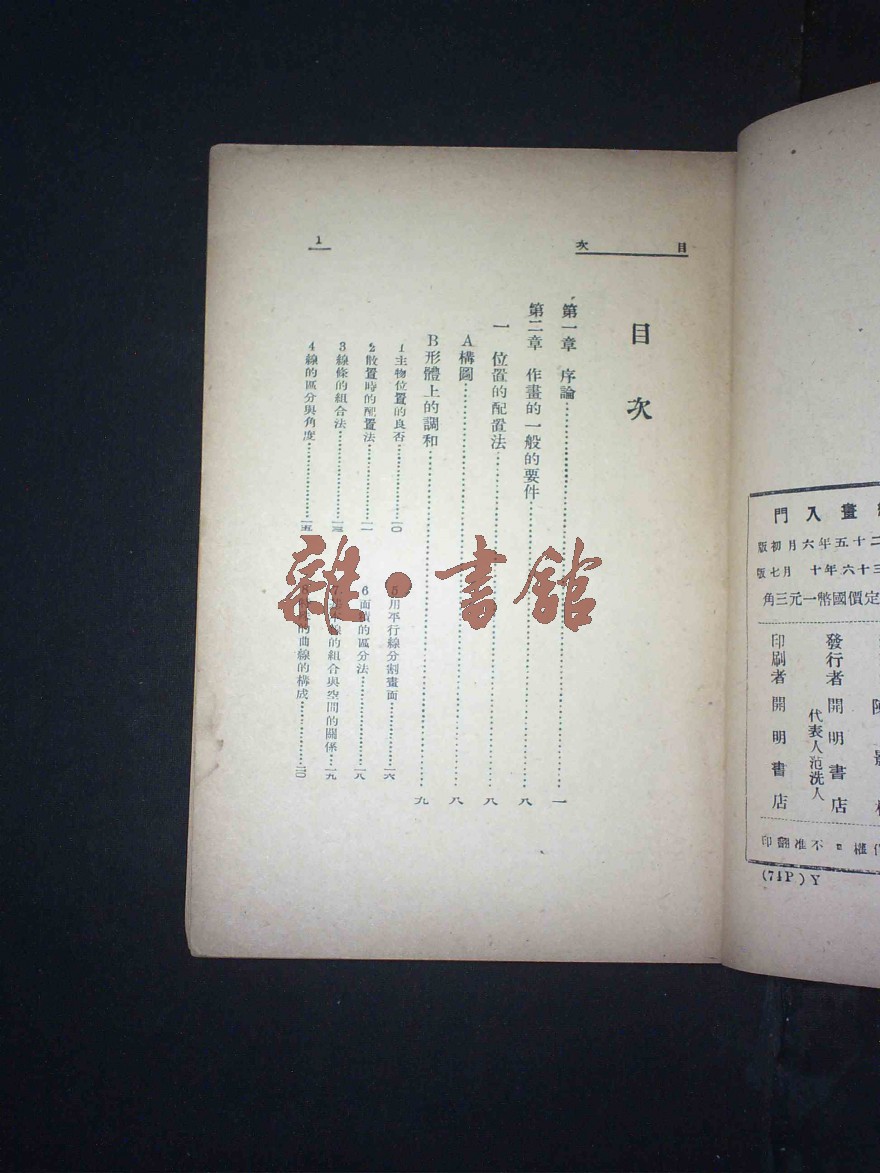 目次
1
目次
第一章 序論……一
第二章 作畫的一般的要件……八
一 位置的配置法……八
A構圖……八
B形體上的調和……九
1主物位置的良否……一〇
2散置時的配置法……一一
3線條的組合法……一三
4線的區分與角度……一五
5用平行線分割畫面……一六
6面積的區分法……一八
7線的組合與空間的關係……一九
8的曲線的構成……二〇
雜·書館
畫入門
二十五年六月初版
三十六年十月七版
定價國幣一元三角
發行者 開明書店
代表人范洗人
印刷者 開明書店
權 不准翻印
(74P)Y